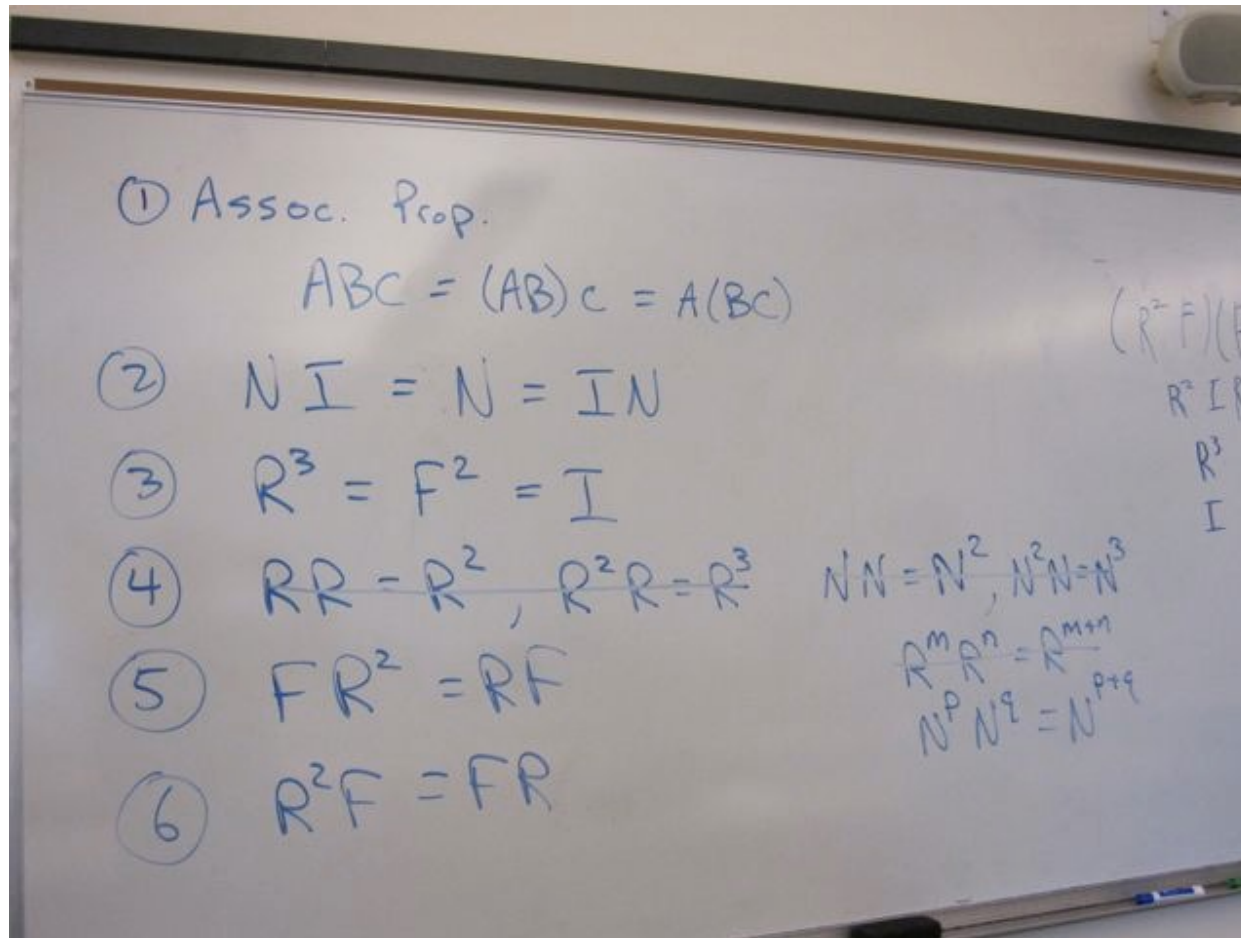 ① Assoc. Prop.
ABC = (AB)C = A(BC)
② NI = N = IN
③ R³ = F² = I
④ RR = R², R²R = R³ NN = N², N²N = N³
RᵐRⁿ = Rᵐ⁺ⁿ
NᵖN^q = N^(p+q)
⑤ FR² = RF
⑥ R²F = FR
(R²F)(
R² I R
R³
I